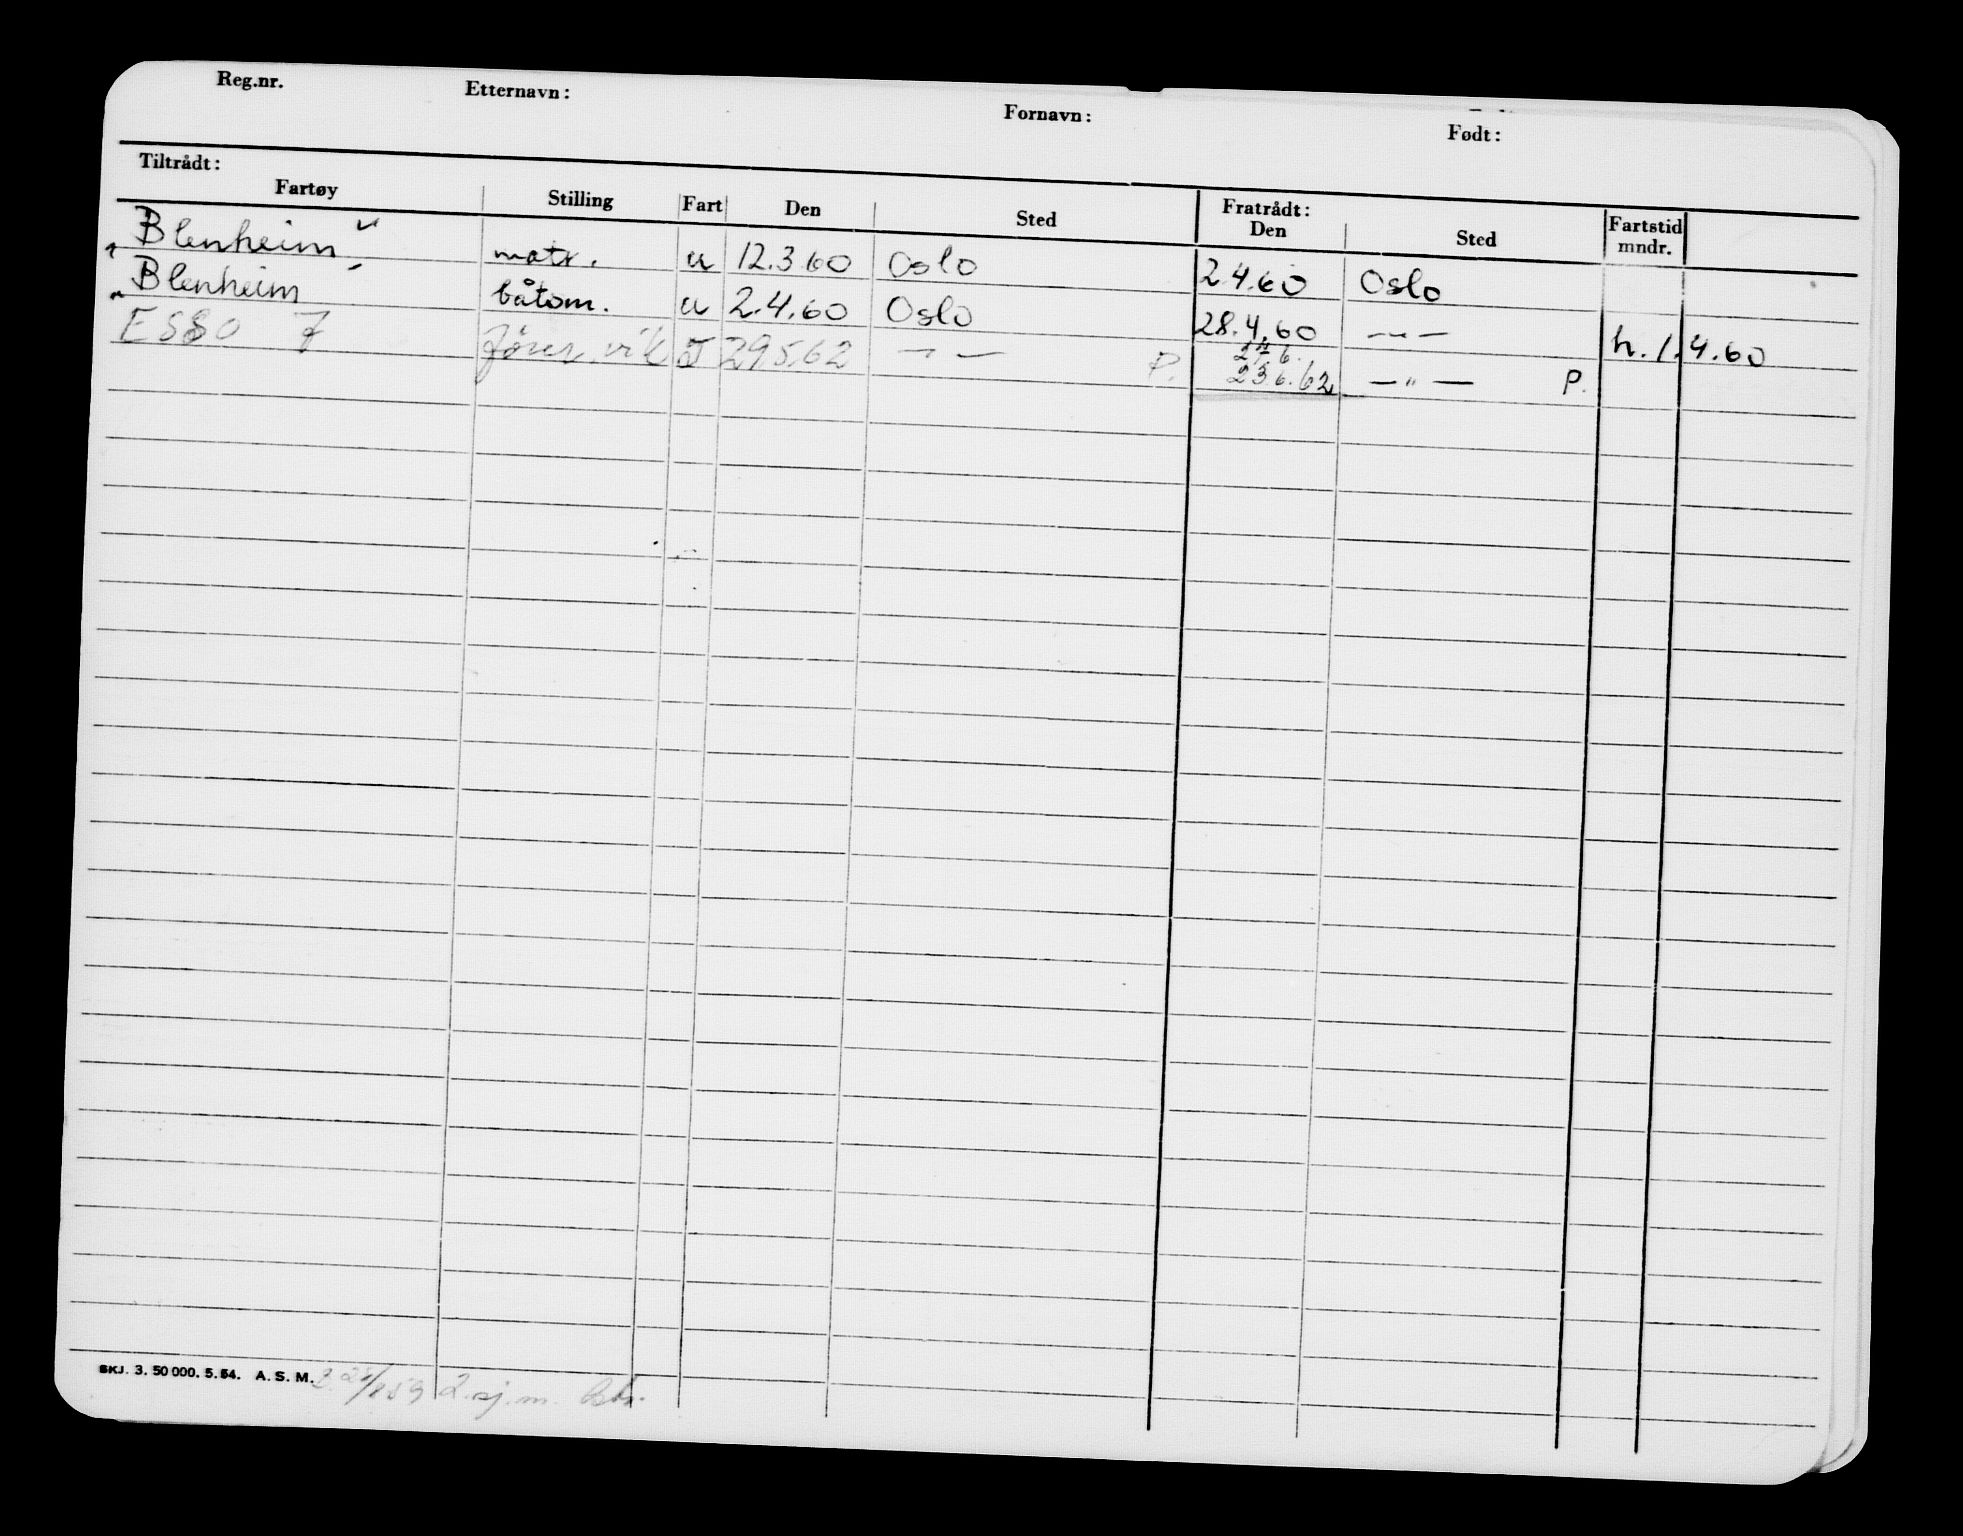 Reg.nr. Etternavn: Fornavn: Født:
Tiltrådt: Fratrådt:
Fartøy Stilling Fart Den Sted Den Sted Fartstid mndr.
"Blenheim" matr. u 12.3.60 Oslo 2.4.60 Oslo
"Blenheim båtsm. u 2.4.60 Oslo 28.4.60 —"— h. 1.4.60
ESSO 7 fører. vik J 29.5.62 —"— P. 23.6.62 —"— P.
SKJ. 3. 50 000. 5.54. A. S. M. 2.sj.m.